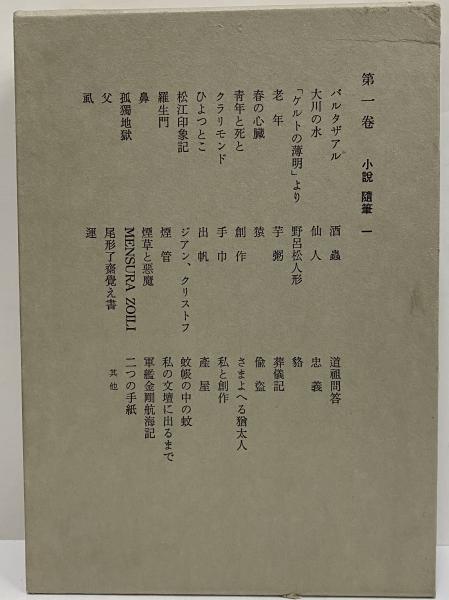 第一卷 小說 隨筆 一
バルタザアル
大川の水
「ケルトの薄明」より
老年
春の心臓
靑年と死と
クラリモンド
ひよつとこ
松江印象記
羅生門
鼻
孤獨地獄
父
虱
酒蟲
仙人
野呂松人形
芋粥
猿
創作
手巾
出帆
ジアン、クリストフ
煙管
煙草と惡魔
MENSURA ZOILI
尾形了齋覺え書
運
道祖問答
忠義
貉
葬儀記
偸盜
さまよへる猶太人
私と創作
產屋
蚊帳の中の蚊
私の文壇に出るまで
軍艦金剛航海記
二つの手紙
其他